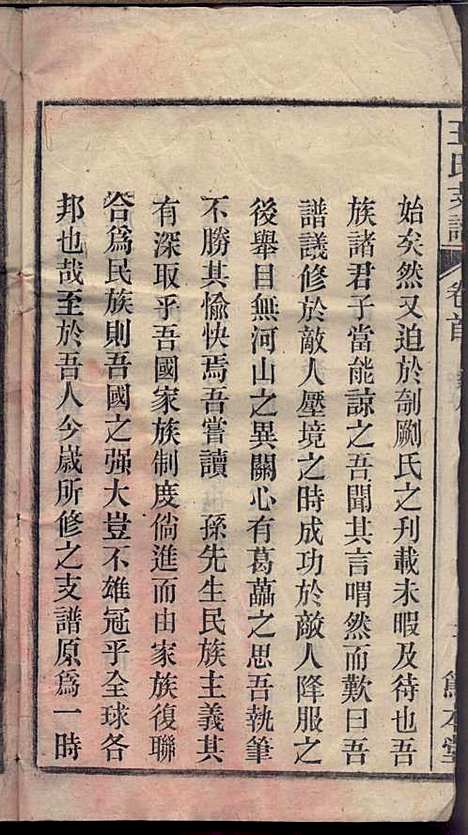 王氏支譜
卷首
始矣然又迫於剞劂氏之刊載未暇及待也吾
族諸君子當能諒之吾聞其言喟然而歎曰吾
譜議修於敵人壓境之時成功於敵人降服之
後舉目無河山之異關心有葛藟之思吾執筆
不勝其愉快焉吾嘗讀　孫先生民族主義其
有深取乎吾國家族制度倘進而由家族復聯
合爲民族則吾國之强大豈不雄冠乎全球各
邦也哉至於吾人今歲所修之支譜原爲一時